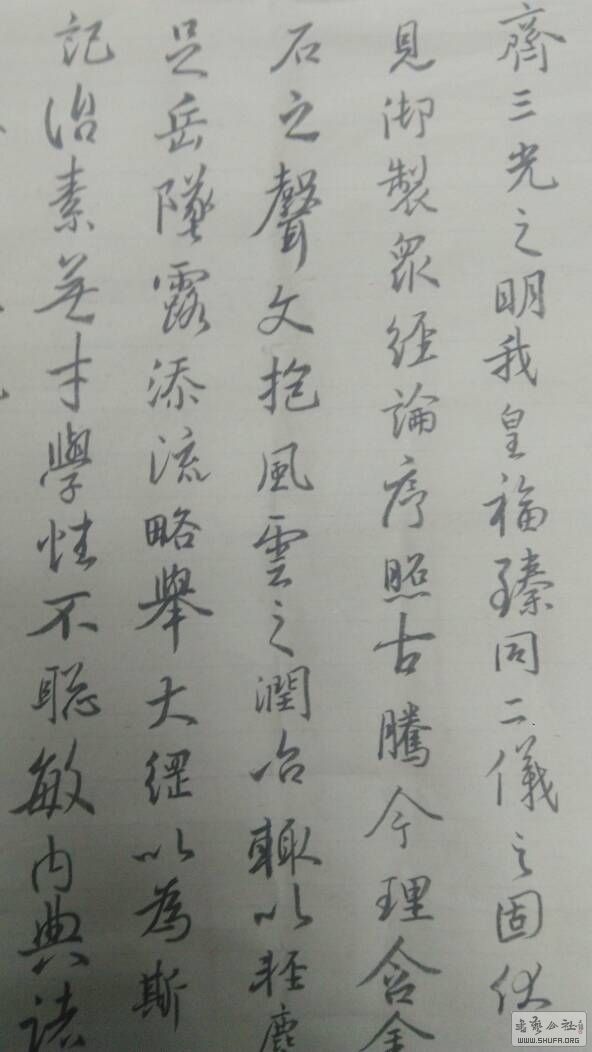 齊三光之明我皇福臻同二儀之固伏
見御製眾經論序照古騰今理含金
石之聲文抱風雲之潤治輙以輕塵
足岳墜露添流略舉大綱以為斯
記治素無才學性不聰敏內典諸
書藝公社
WWW.SHUFA.ORG